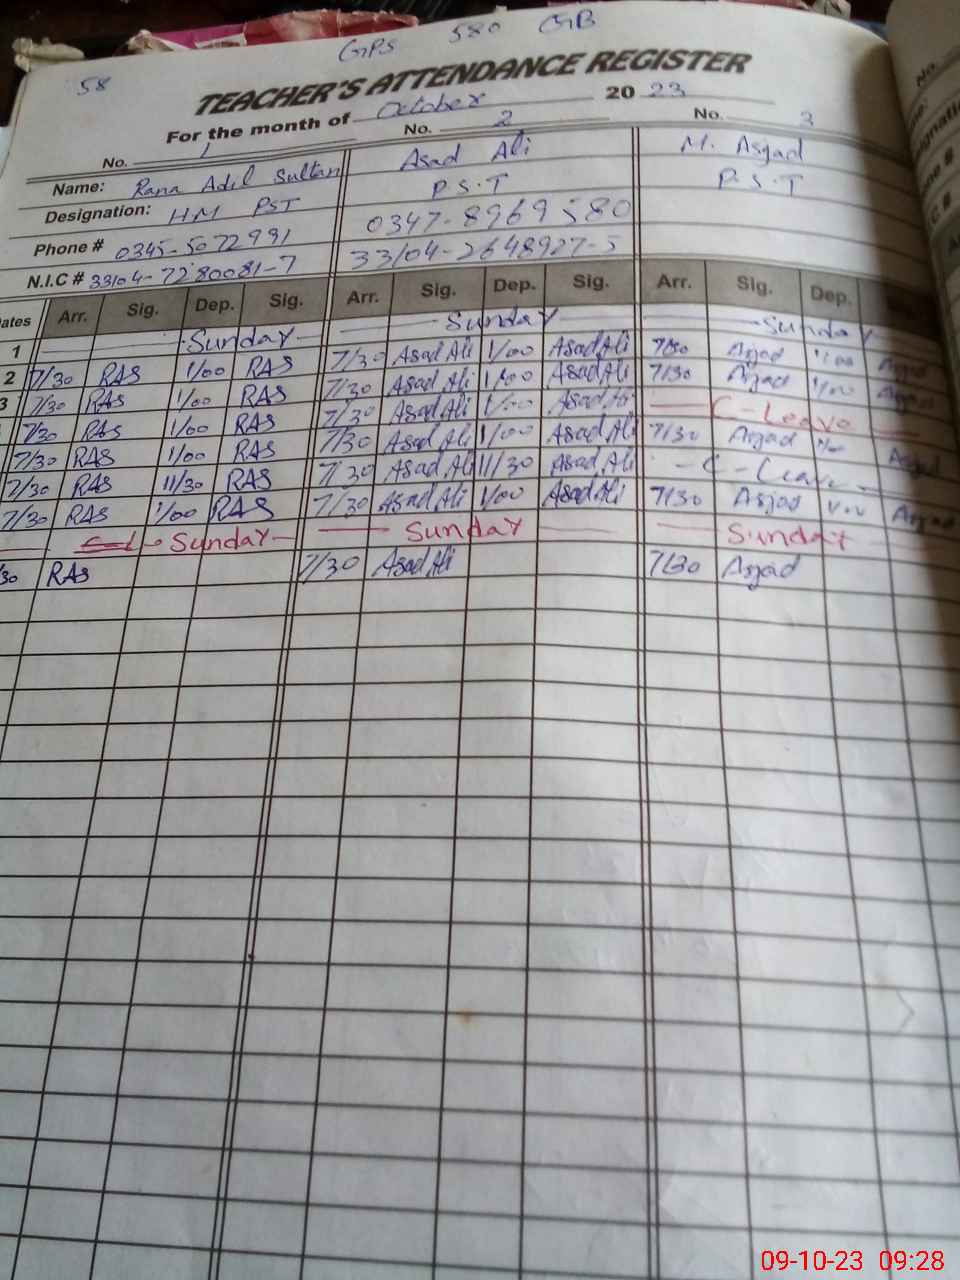 GPS 580 GB
58
TEACHER'S ATTENDANCE REGISTER
For the month of October 20 23
No. 1 No. 2 No. 3
Name: Rana Adil Sultan Asad Ali M. Asjad
Designation: HM PST P.S.T P.S.T
Phone # 0345-5072991 0347-8969580
N.I.C # 33104-7280081-7 33104-2648927-5
Dates Arr. Sig. Dep. Sig. Arr. Sig. Dep. Sig. Arr. Sig. Dep.
1 Sunday Sunday Sunday
2 7/30 RAS 1/00 RAS 7/30 Asad Ali 1/00 Asad Ali 7/30 Asjad 1/00 Asjad
3 7/30 RAS 1/00 RAS 7/30 Asad Ali 1/00 Asad Ali 7/30 Asjad 1/00 Asjad
7/30 RAS 1/00 RAS 7/30 Asad Ali 1/00 Asad Ali C-Leave
7/30 RAS 1/00 RAS 7/30 Asad Ali 1/00 Asad Ali 7/30 Asjad 1/00 Asjad
7/30 RAS 11/30 RAS 7/30 Asad Ali 11/30 Asad Ali C-Leave
7/30 RAS 1/00 RAS 7/30 Asad Ali 1/00 Asad Ali 7/30 Asjad 1/00 Asjad
Sunday Sunday Sunday
/30 RAS 7/30 Asad Ali 7/30 Asjad
09-10-23 09:28